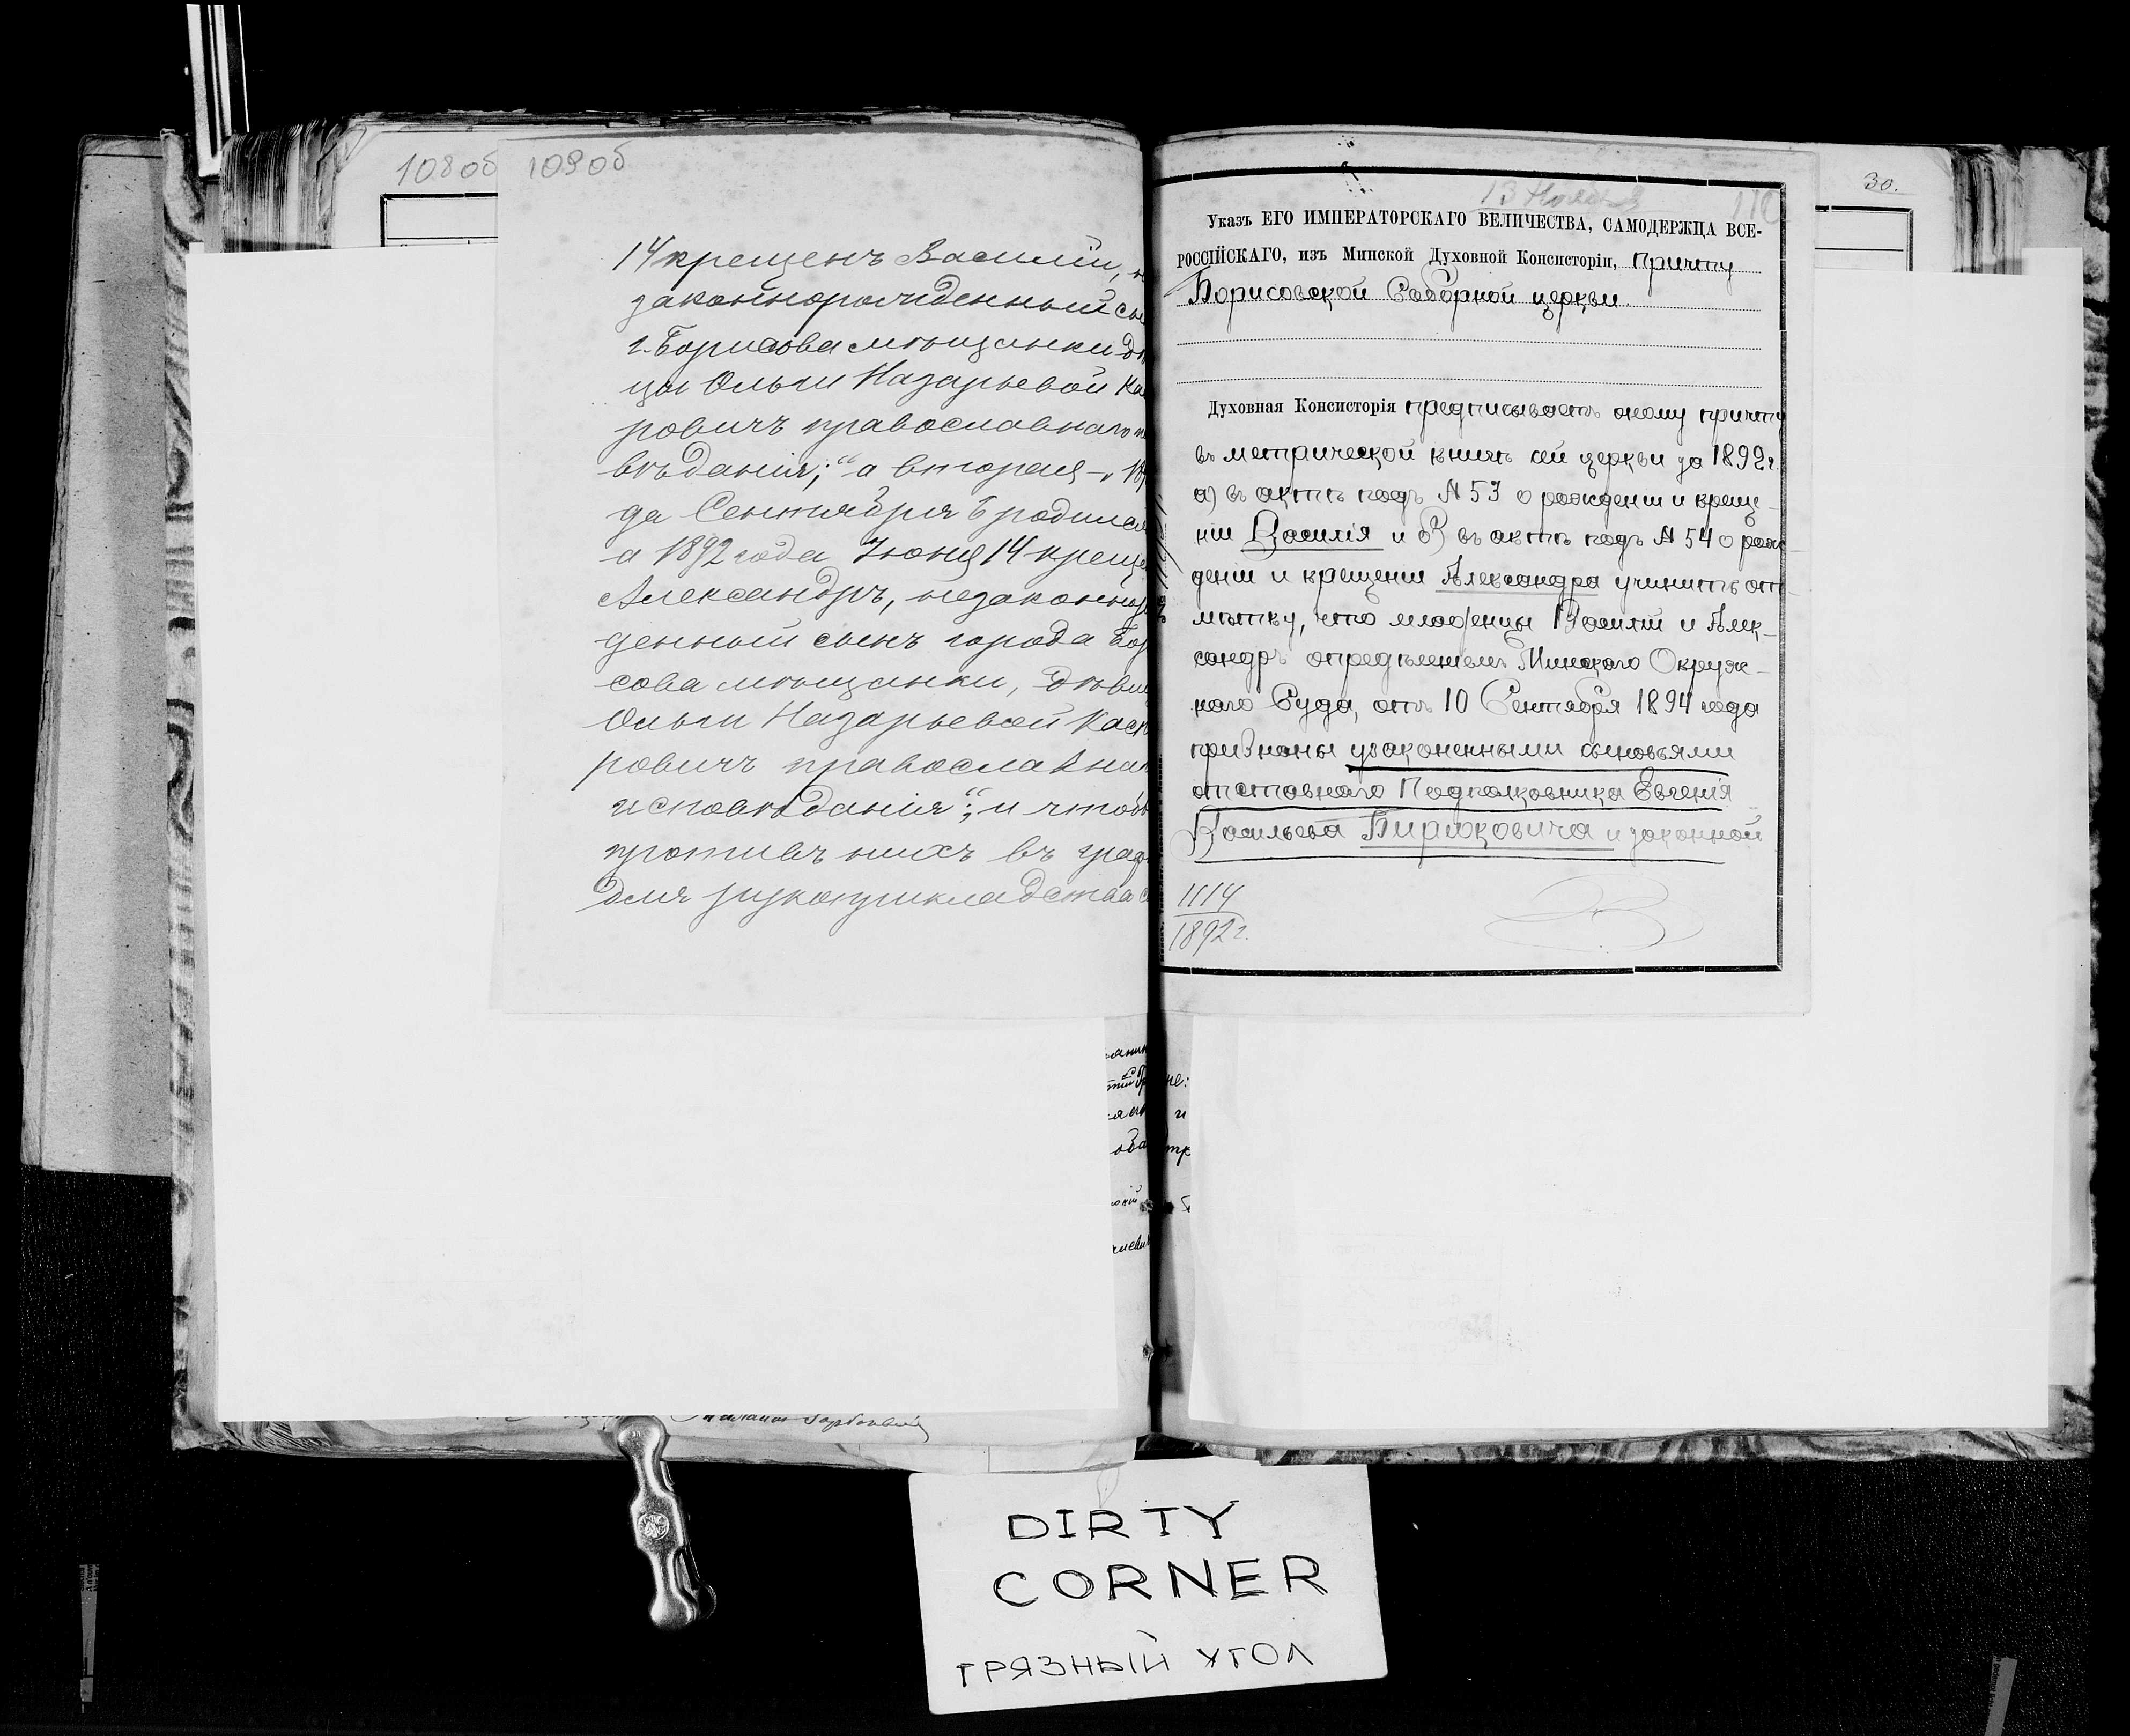 108об
109об
14 крещенъ Василій,
законнорожденный
г. Борисова мѣщанки
цы Ольги Назарьевой Ка
ровичъ православнаго
вѣданія;" а вторая –
да Сентября 6 родился
а 1892 года Іюня 14 креще
Александръ, незаконнор
денный сынъ города Бор
сова мѣщанки, дѣви
Ольги Назарьевой Касп
ровичъ православна
исповѣданія"; и чтобы
противъ нихъ въ граф
для рукоприкладства с
30.
Указъ ЕГО ИМПЕРАТОРСКАГО ВЕЛИЧЕСТВА, САМОДЕРЖЦА ВСЕ-
РОССІЙСКАГО, изъ Минской Духовной Консисторіи, Причту
Борисовской Соборной церкви.
Духовная Консисторія предписываетъ оному причту
въ метрической книгѣ сей церкви за 1892 г.
а) въ актѣ подъ № 53 о рожденіи и креще-
ніи Василія и б) въ актѣ подъ № 54 о рож-
деніи и крещеніи Александра учинить от-
мѣтку, что младенцы Василій и Алек-
сандръ опредѣленіемъ Минскаго Окруж-
наго Суда, отъ 10 Сентября 1894 года
признаны узаконенными сыновьями
отставнаго Подполковника Евгенія
Васильева Бирюковича и законной
1114
1892 г.
DIRTY
CORNER
ГРЯЗНЫЙ УГОЛ